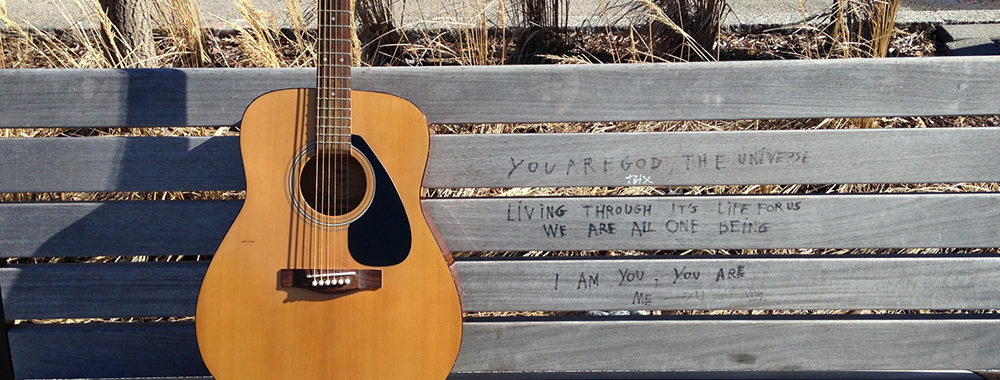 YOU ARE GOD, THE UNIVERSE
THX
LIVING THROUGH IT'S LIFE FOR US
WE ARE ALL ONE BEING
I AM YOU, YOU ARE
ME